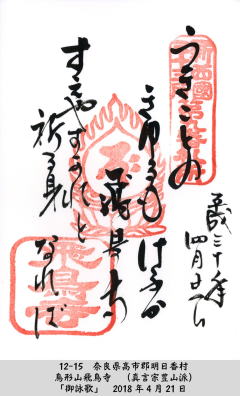 平成三十年
四月廿一日
うきことの
きゆるもけふか
飛鳥寺
すえやすかれと
祈る身
なれば
飛鳥寺
12-15　奈良県高市郡明日香村
鳥形山飛鳥寺　（真言宗豊山派）
「御詠歌」　2018年4月21日